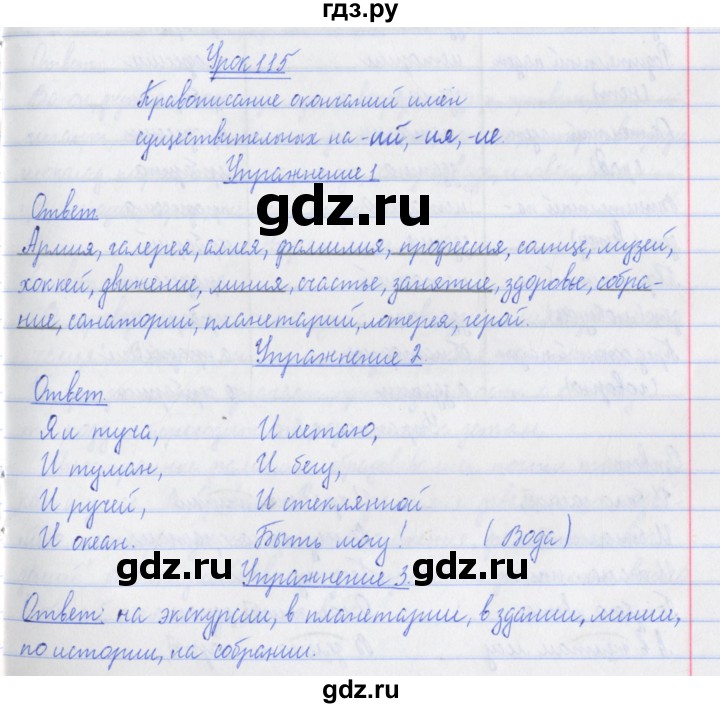 гдз.ру
Урок 115
Правописание окончаний имён
существительных на -ий, -ия, -ие.
Упражнение 1
gdz.ru
Ответ
Армия, галерея, аллея, фамилия, професия, солнце, музей,
хоккей, движение, линия, счастье, занятие, здоровье, собра-
ние, санаторий, планетарий, лотерея, герой.
Упражнение 2
Ответ.
Я и туча, И летаю,
И туман, И бегу,
И ручей, И стеклянной
И океан. Быть могу! (Вода)
gdz.ru gdz.ru
Упражнение 3.
Ответ: на экскурсии, в планетарии, в здании, линии,
по истории, на собрании.
gdz.ru